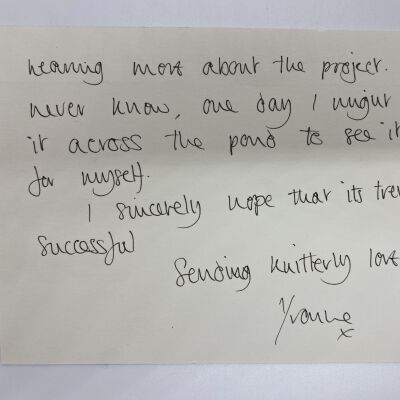 hearing more about the project.
never know, one day I might
it across the pond to see it
for myself.
I sincerely hope that its
successful
Sending knitterly love
Yvonne
x